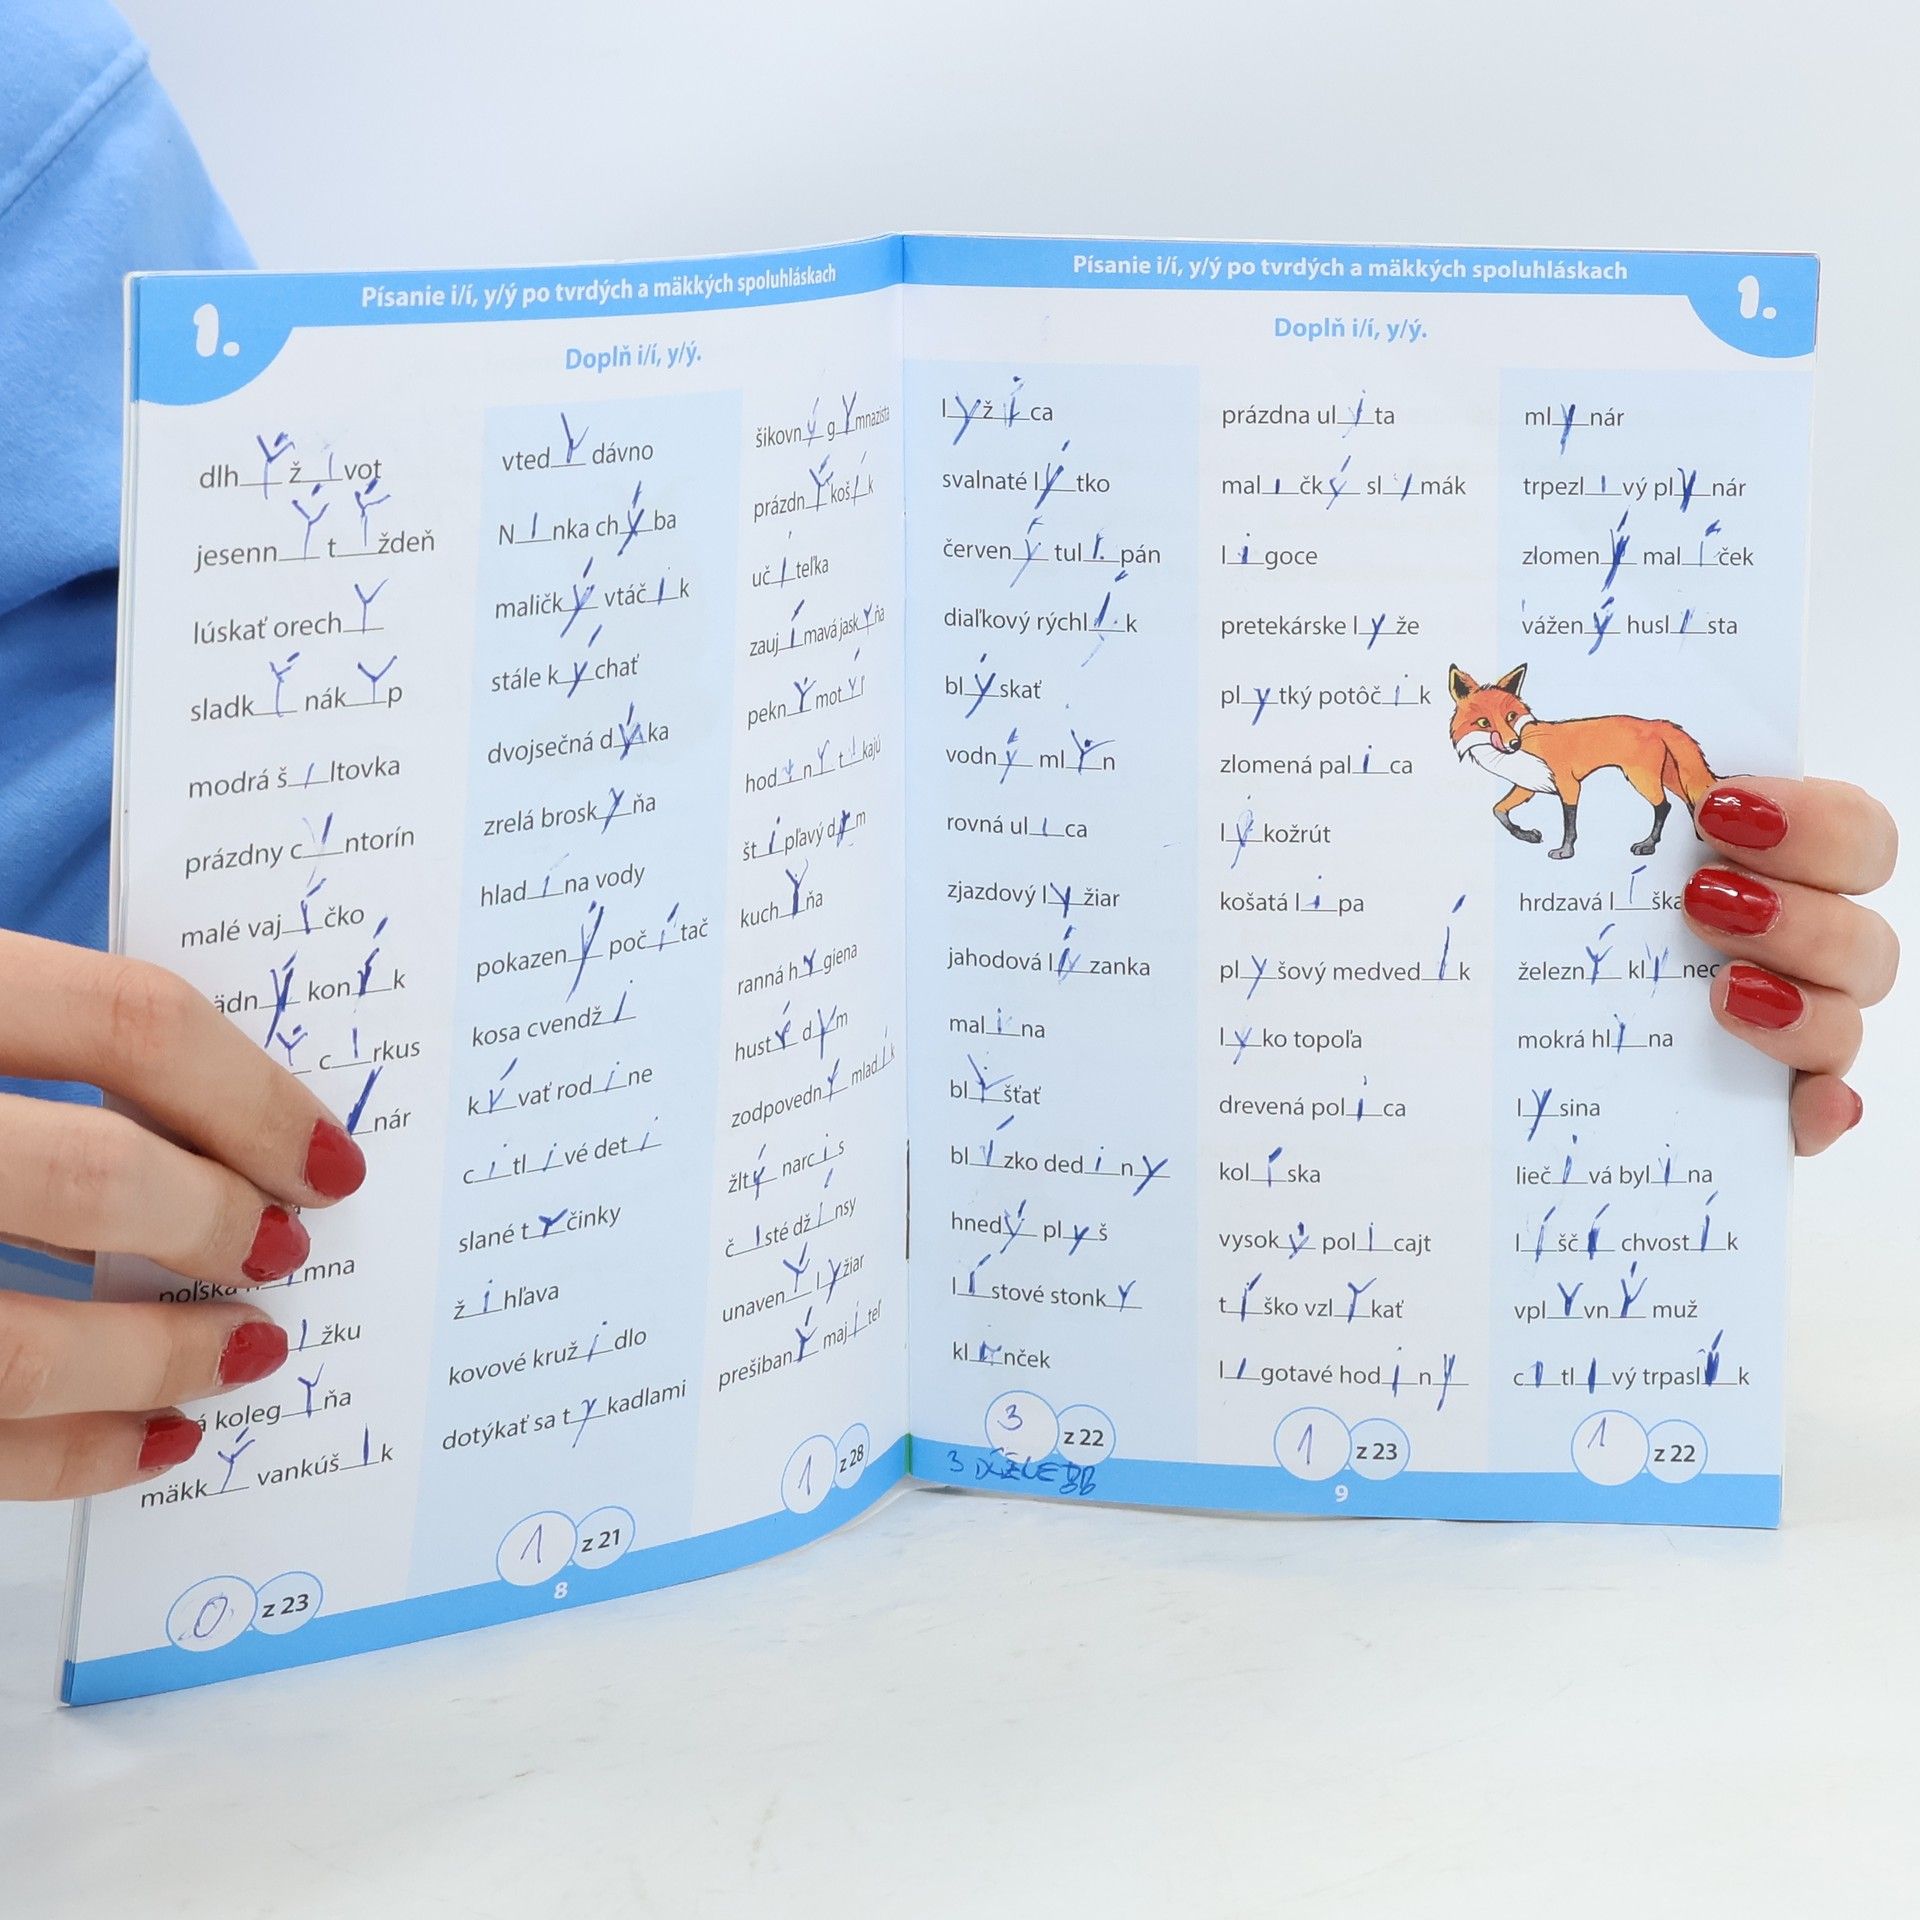 Písanie i/í, y/ý po tvrdých a mäkkých spoluhláskach
1.
Doplň i/í, y/ý.
dlhý život
jesenný týždeň
lúskať orechy
sladký nákyp
modrá šiltovka
prázdny cintorín
malé vajíčko
ädný koník
ý cirkus
nár
poľská imna
ižku
á kolegyňa
mäkký vankúšik
0 z 23
vtedy dávno
Ninka chýba
maličký vtáčik
stále kýchať
dvojsečná dýka
zrelá broskyňa
hladina vody
pokazený počítač
kosa cvendži
kývať rodine
citlivé deti
slané tyčinky
žihľava
kovové kružidlo
dotýkať sa tykadlami
1 z 21
šikovný gymnazista
prázdný košík
učiteľka
zaujímavá jaskyňa
pekný motýľ
hodiny tikajú
štipľavý dym
kuchyňa
ranná hygiena
hustý dym
zodpovedný mladík
žltý narcis
čisté džínsy
unavený lyžiar
prešibaný majiteľ
1 z 28
8
Písanie i/í, y/ý po tvrdých a mäkkých spoluhláskach
1.
Doplň i/í, y/ý.
lyžíca
svalnaté lýtko
červený tulipán
diaľkový rýchlík
blýskať
vodný mlyn
rovná ulica
zjazdový lyžiar
jahodová lízanka
malina
blyšťať
blízko dediny
hnedý plyš
lístové stonky
klinček
3 z 22
prázdna ulita
maličký slimák
ligoce
pretekárske lyže
plytký potôčik
zlomená palica
lykožrút
košatá lipa
plyšový medvedík
lyko topoľa
drevená polica
kolíska
vysoký policajt
tíško vzlykať
ligotavé hodiny
1 z 23
mlynár
trpezlivý plynár
zlomený malíček
vážený huslista
hrdzavá líška
železný klinec
mokrá hlina
lysina
liečivá bylina
líščí chvostík
vplyvný muž
citlivý trpaslík
1 z 22
9